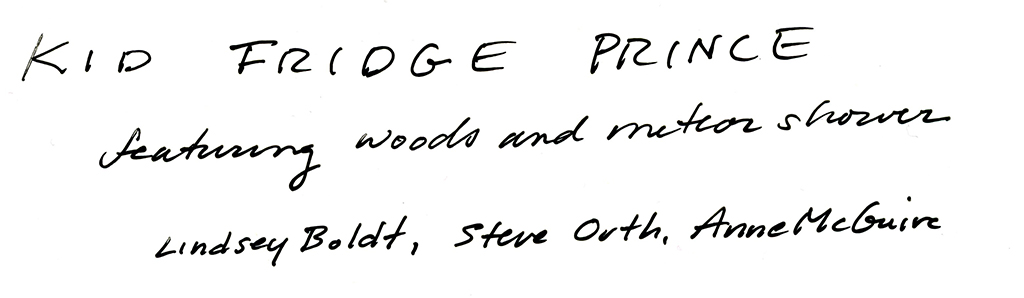 KID FRIDGE PRINCE
featuring woods and meteor shower
Lindsey Boldt, Steve Orth, Anne McGuire